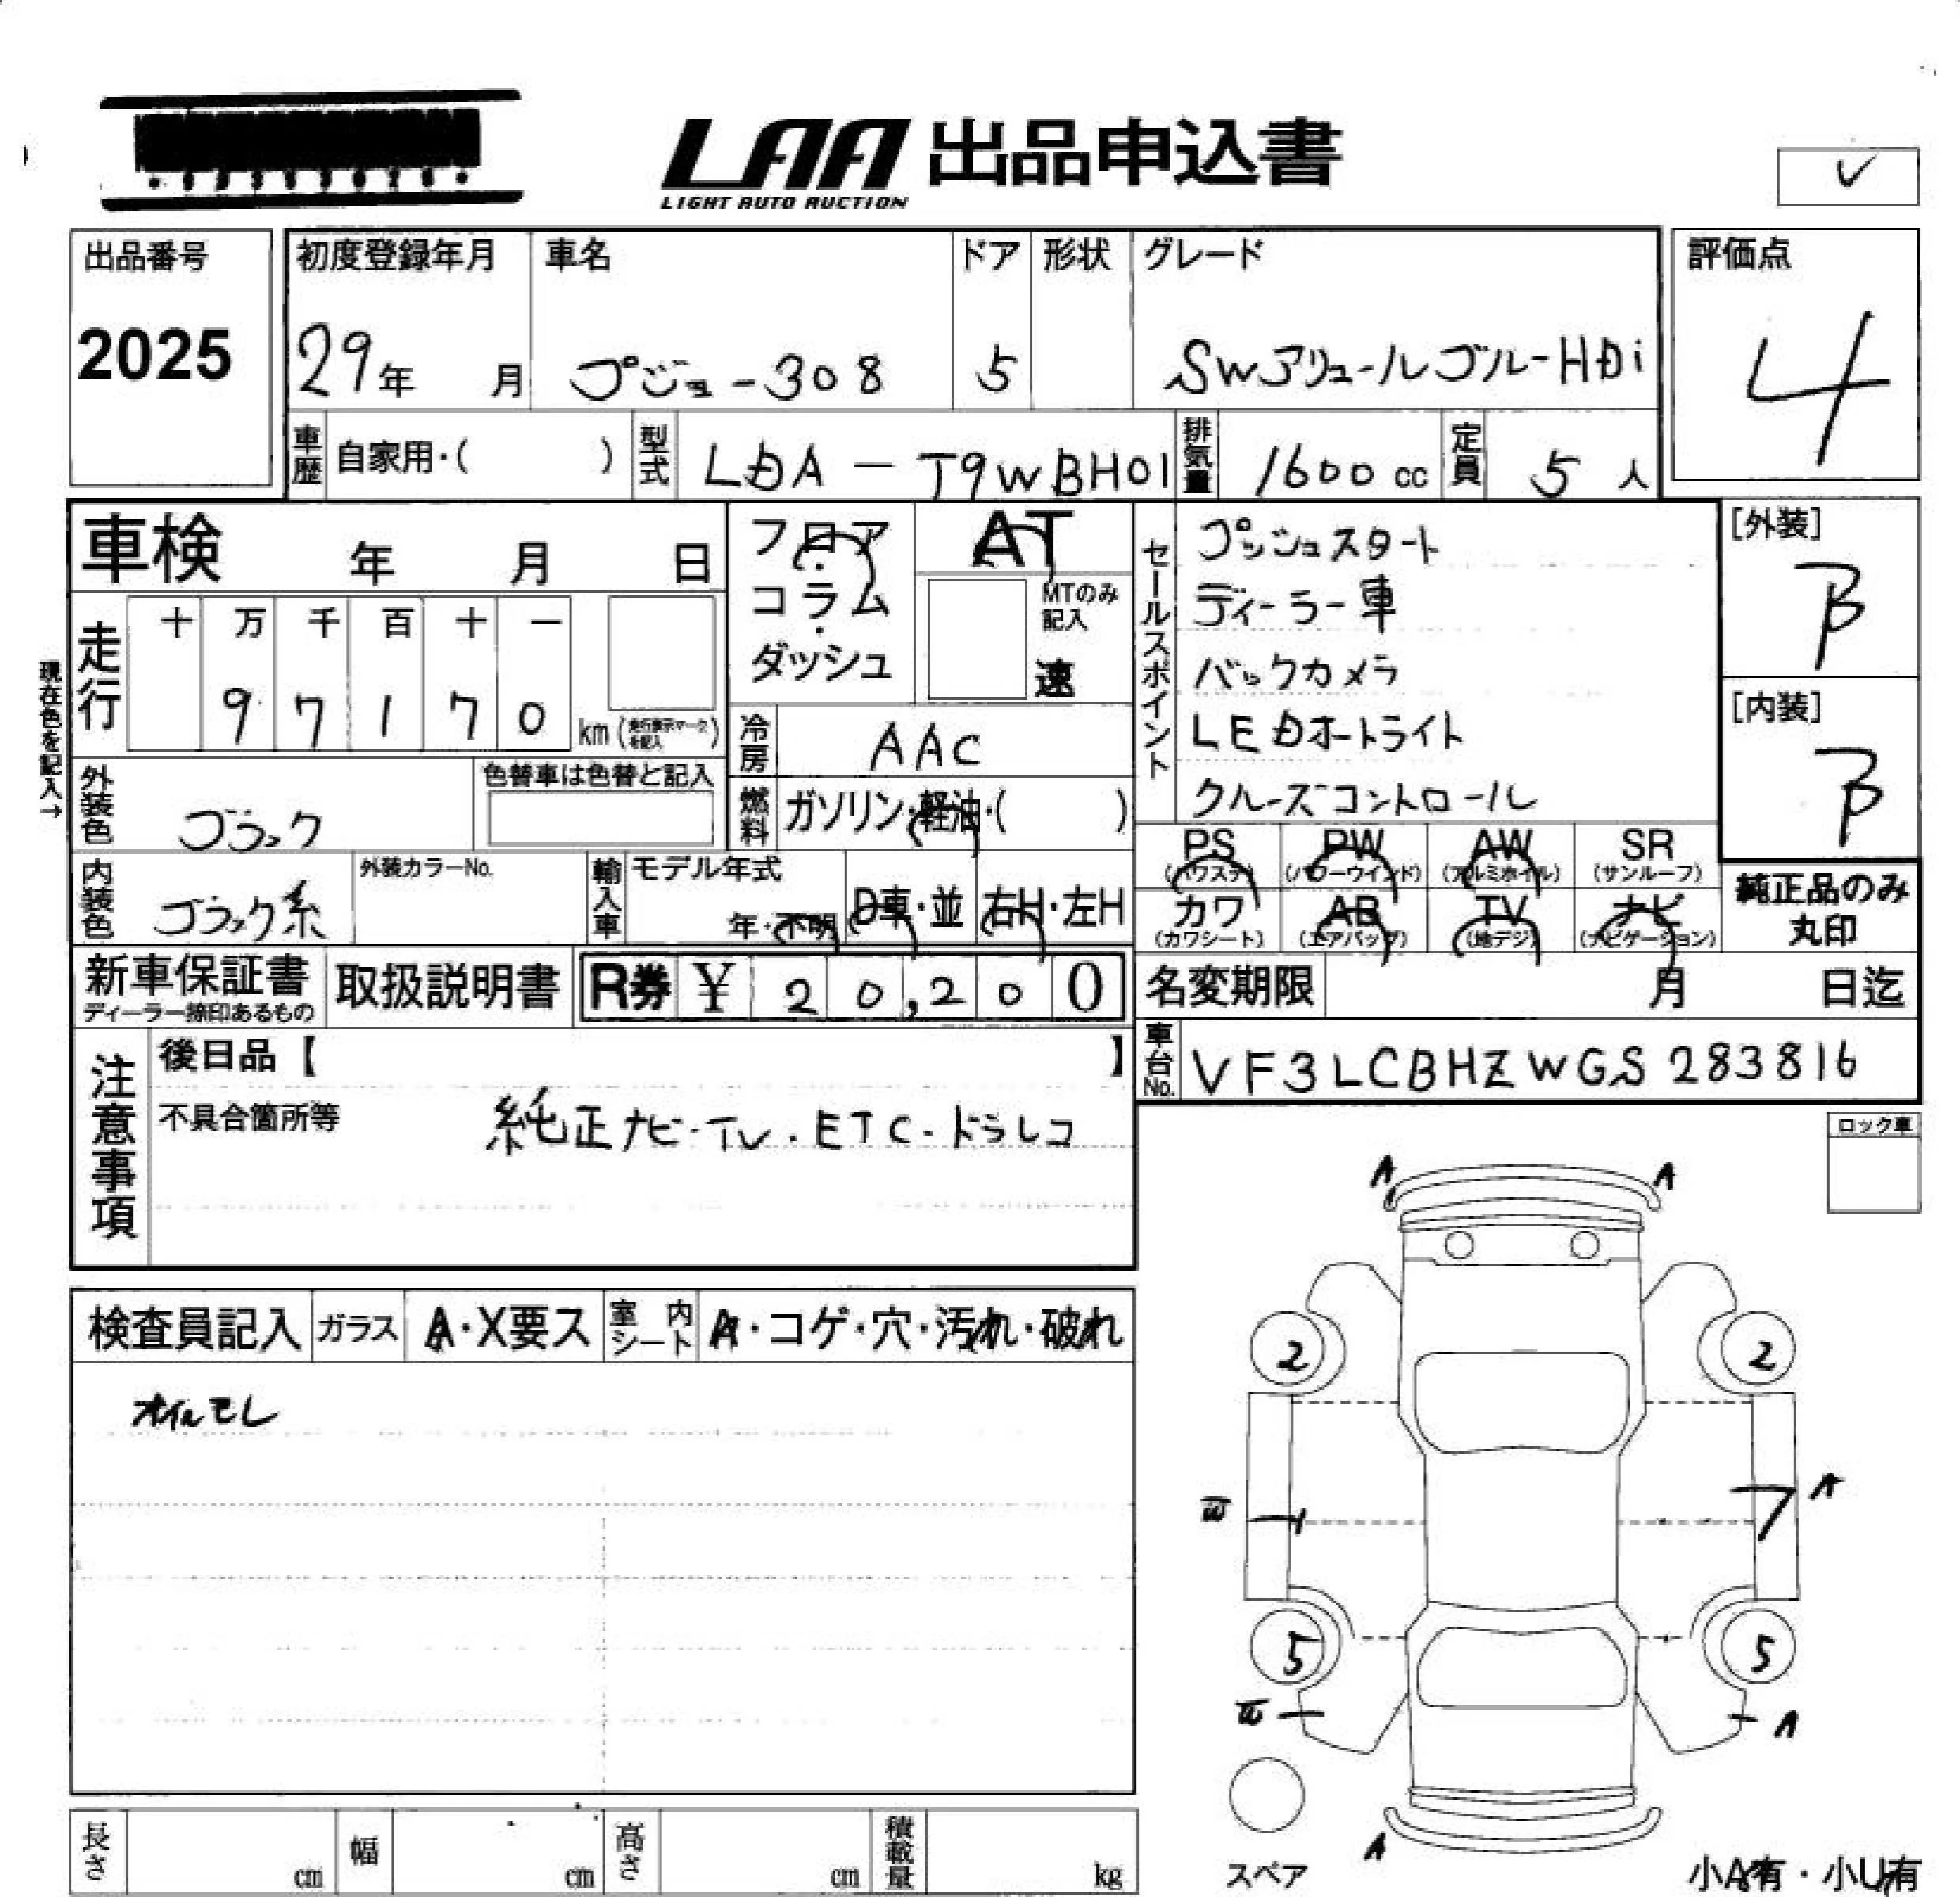 LAA 出品申込書
LIGHT AUTO AUCTION
✓
出品番号
2025
初度登録年月
29年 月
車名
プジョー308
ドア
5
形状
グレード
SWアリュールブルーHDi
評価点
4
車歴 自家用・( )
型式 LDA-T9WBH01
排気量 1600 cc
定員 5 人
車検 年 月 日
フロア・コラム・ダッシュ
AT
MTのみ記入
速
セールスポイント
プッシュスタート
ディーラー車
バックカメラ
LEDオートライト
クルーズコントロール
[外装]
B
[内装]
B
現在色を記入→
走行
十 万 千 百 十 一
9 7 1 7 0 km (走行表示マークを記入)
冷房 AAC
外装色 ブラック
色替車は色替と記入
燃料 ガソリン・軽油・( )
PS (パワステ)
PW (パワーウインド)
AW (アルミホイル)
SR (サンルーフ)
内装色 ブラック系
外装カラーNo.
輸入車 モデル年式
年・不明
D車・並
右H・左H
カワ (カワシート)
AB (エアバッグ)
TV (地デジ)
ナビ (ナビゲーション)
純正品のみ
丸印
新車保証書
ディーラー捺印あるもの
取扱説明書
R券 ¥ 20,200
名変期限 月 日迄
車台No. VF3LCBHZWGS283816
注意事項
後日品【 】
不具合箇所等
純正ナビ・TV・ETC・ドラレコ
ロック車
検査員記入
ガラス A・X要ス
室内シート A・コゲ・穴・汚れ・破れ
オイルモレ
A A
2 2
A
W
5 5
W A
A
スペア
小A有・小U有
長さ cm
幅 cm
高さ cm
積載量 kg